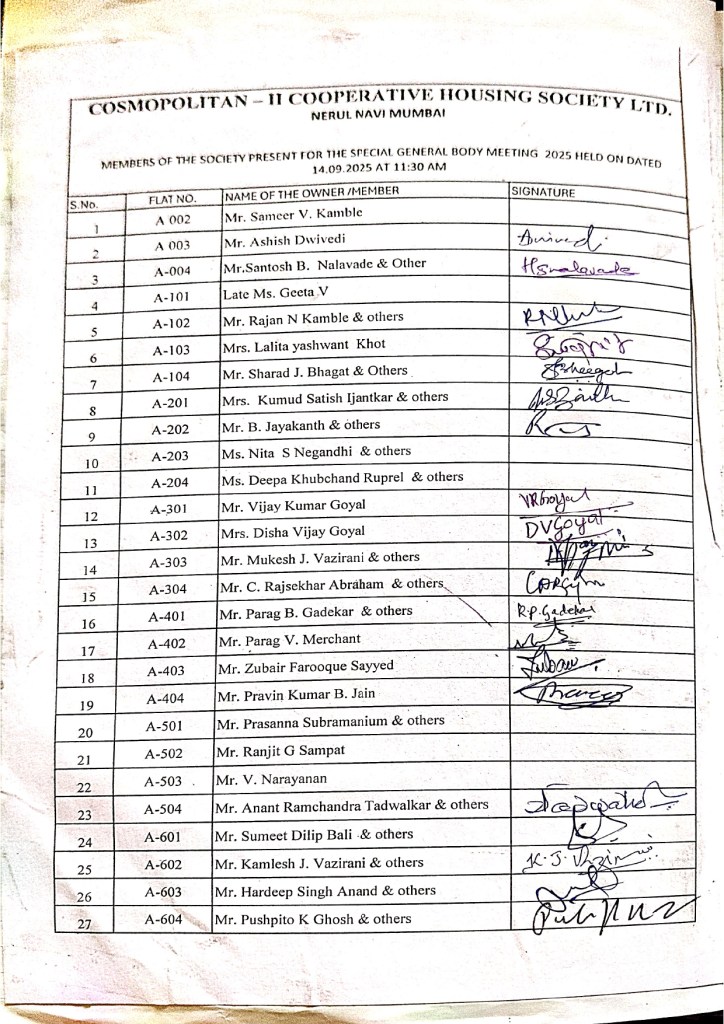 COSMOPOLITAN – II COOPERATIVE HOUSING SOCIETY LTD.
NERUL NAVI MUMBAI
MEMBERS OF THE SOCIETY PRESENT FOR THE SPECIAL GENERAL BODY MEETING 2025 HELD ON DATED
14.09.2025 AT 11:30 AM
S.No. FLAT NO. NAME OF THE OWNER /MEMBER SIGNATURE
1 A 002 Mr. Sameer V. Kamble
2 A 003 Mr. Ashish Dwivedi
3 A-004 Mr.Santosh B. Nalavade & Other HSnalavade
4 A-101 Late Ms. Geeta V
5 A-102 Mr. Rajan N Kamble & others
6 A-103 Mrs. Lalita yashwant Khot
7 A-104 Mr. Sharad J. Bhagat & Others
8 A-201 Mrs. Kumud Satish Ijantkar & others
9 A-202 Mr. B. Jayakanth & others
10 A-203 Ms. Nita S Negandhi & others
11 A-204 Ms. Deepa Khubchand Ruprel & others
12 A-301 Mr. Vijay Kumar Goyal VKGoyal
13 A-302 Mrs. Disha Vijay Goyal DVGoyal
14 A-303 Mr. Mukesh J. Vazirani & others
15 A-304 Mr. C. Rajsekhar Abraham & others
16 A-401 Mr. Parag B. Gadekar & others R.P.Gadekar
17 A-402 Mr. Parag V. Merchant
18 A-403 Mr. Zubair Farooque Sayyed
19 A-404 Mr. Pravin Kumar B. Jain
20 A-501 Mr. Prasanna Subramanium & others
21 A-502 Mr. Ranjit G Sampat
22 A-503 Mr. V. Narayanan
23 A-504 Mr. Anant Ramchandra Tadwalkar & others
24 A-601 Mr. Sumeet Dilip Bali & others
25 A-602 Mr. Kamlesh J. Vazirani & others K.J.Vazirani
26 A-603 Mr. Hardeep Singh Anand & others
27 A-604 Mr. Pushpito K Ghosh & others